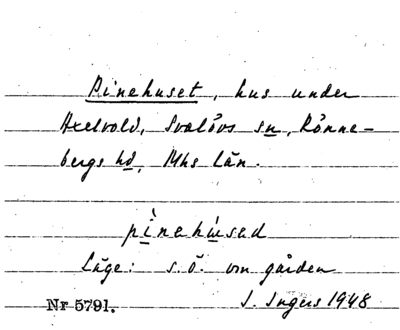 Pinehuset, hus under
Axelvold, Svalövs sn, Rönne-
bergs hd, Mhs län.
pìnehúsed
Läge: s.ö. om gården
Nr 5791. I. Ingers 1948